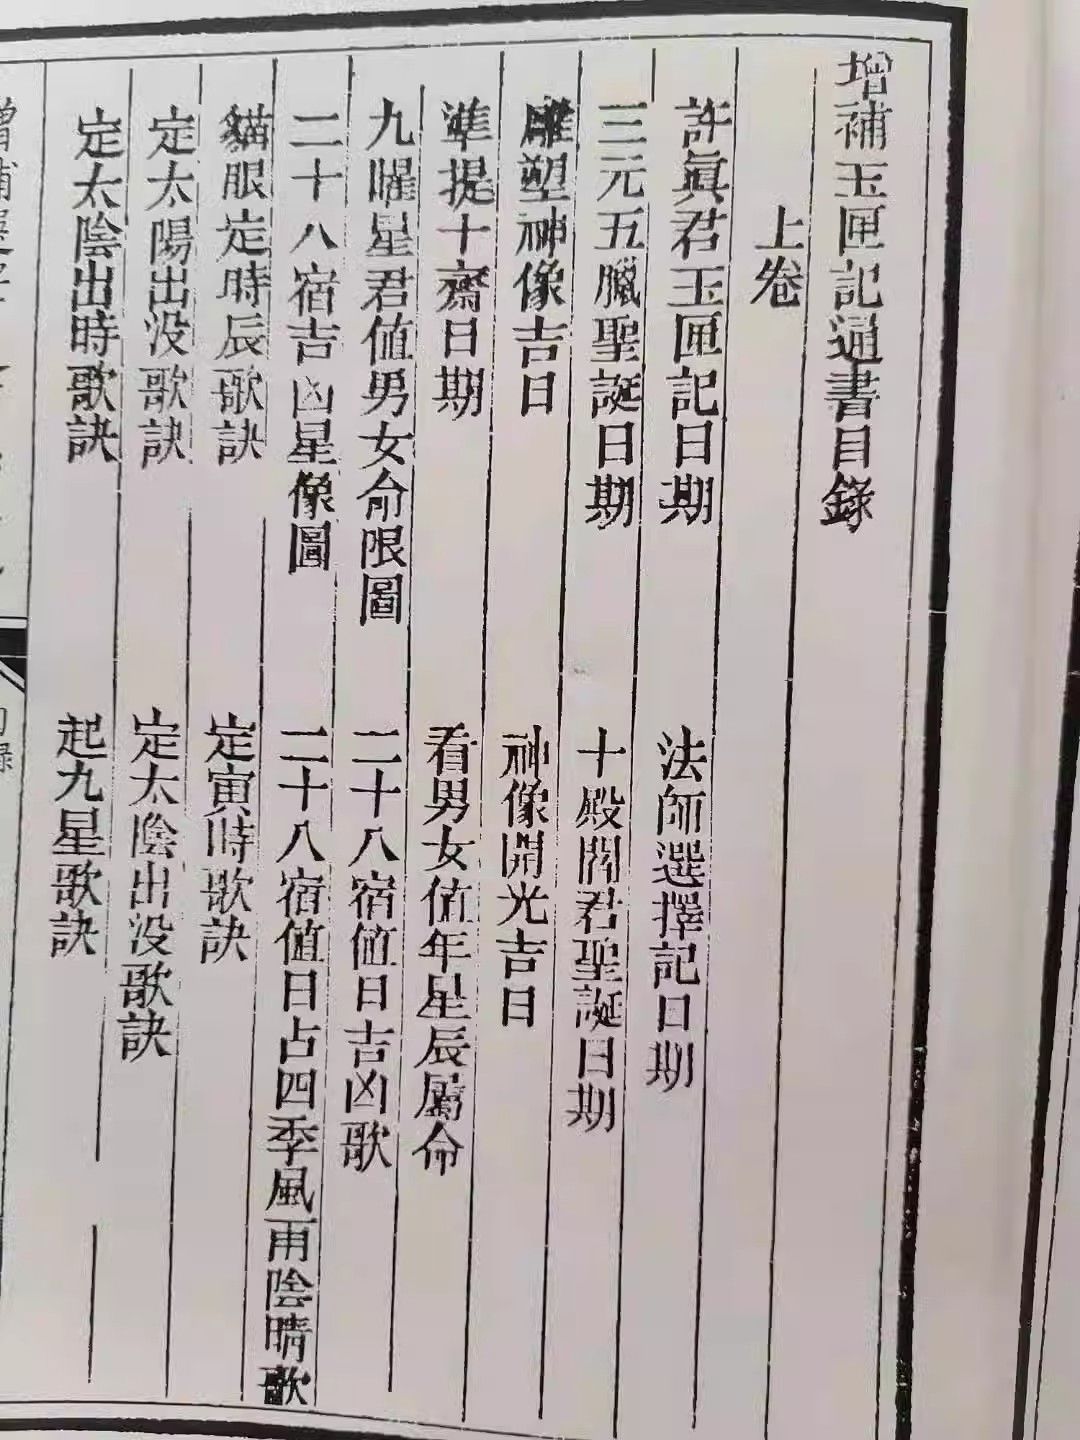 增補玉匣記通書目錄
上卷
許眞君玉匣記日期 法師選擇記日期
三元五臘聖誕日期 十殿閻君聖誕日期
雕塑神像吉日 神像開光吉日
準提十齋日期 看男女值年星辰屬命
九曜星君值男女命限圖 二十八宿值日吉凶歌
二十八宿吉凶星像圖 二十八宿值日占四季風雨陰晴歌
貓眼定時辰歌訣 定寅時歌訣
定太陽出没歌訣 定太陰出没歌訣
定太陰出時歌訣 起九星歌訣